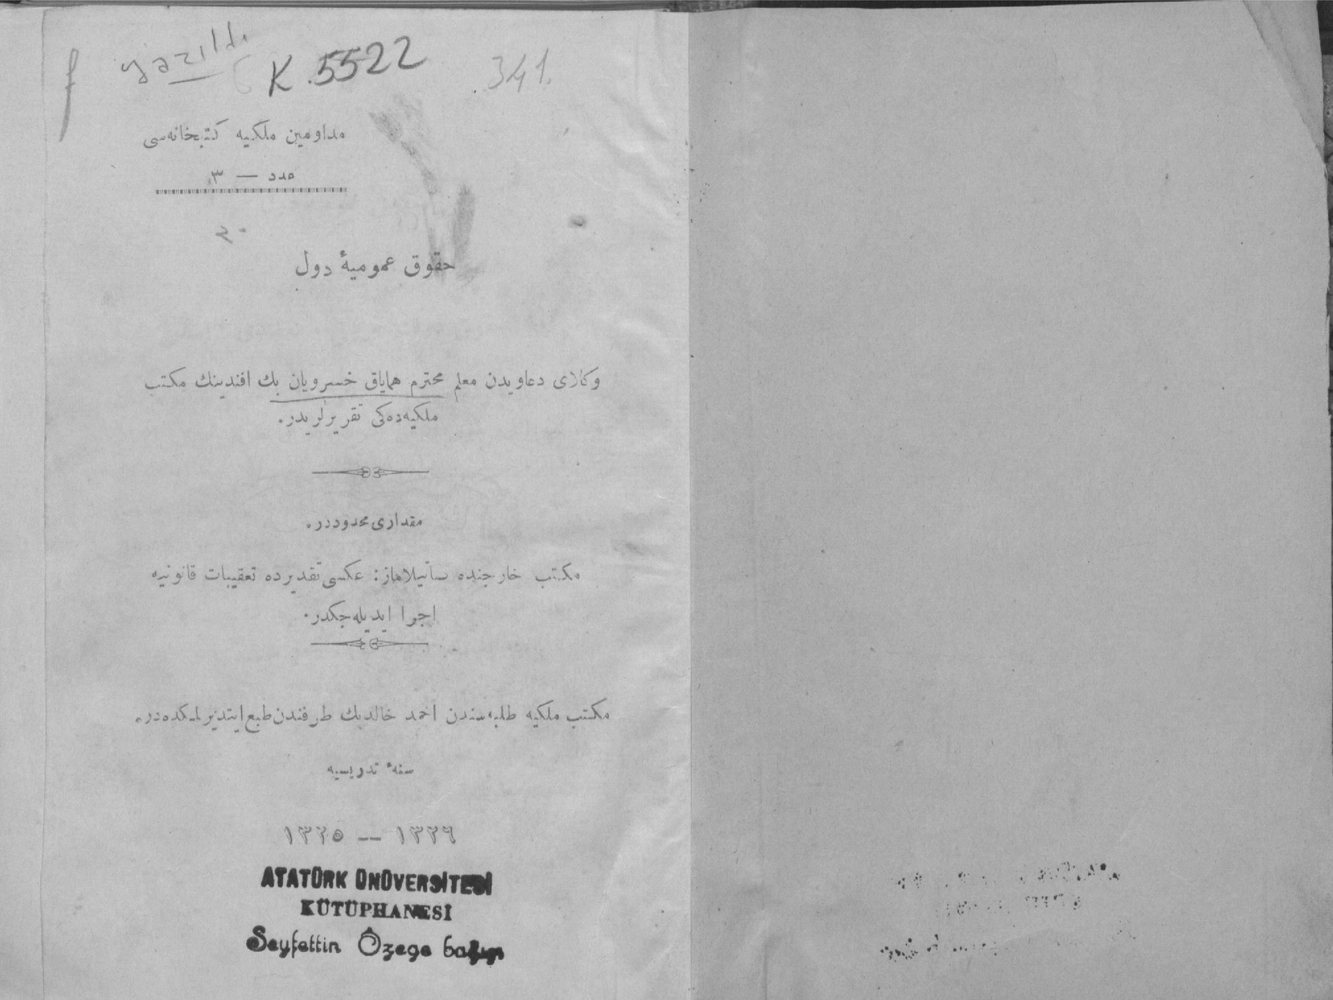 yazıldı
K.5522
341.
مداومین ملكیه كتبخانه‌سی
عدد — ٣
حقوق عمومیهٔ دول
وكلای دعاویدن معلم محترم هایاق خسرویان بك افندینك مكتب
ملكیه‌ده‌كی تقریرلریدر.
مقداری محدوددر.
مكتب خارجنده صاتیلاماز: عكسی تقدیرده تعقیبات قانونیه
اجرا ایدیله‌جكدر.
مكتب ملكیه طلبه‌سندن احمد خالد بك طرفندن طبع ایتدیرلمكده‌در.
سنهٔ تدریسیه
١٣٢٥ — ١٣٢٦
ATATÜRK ÜNÜVERSİTESİ
KÜTÜPHANESİ
Seyfettin Özege bağışı